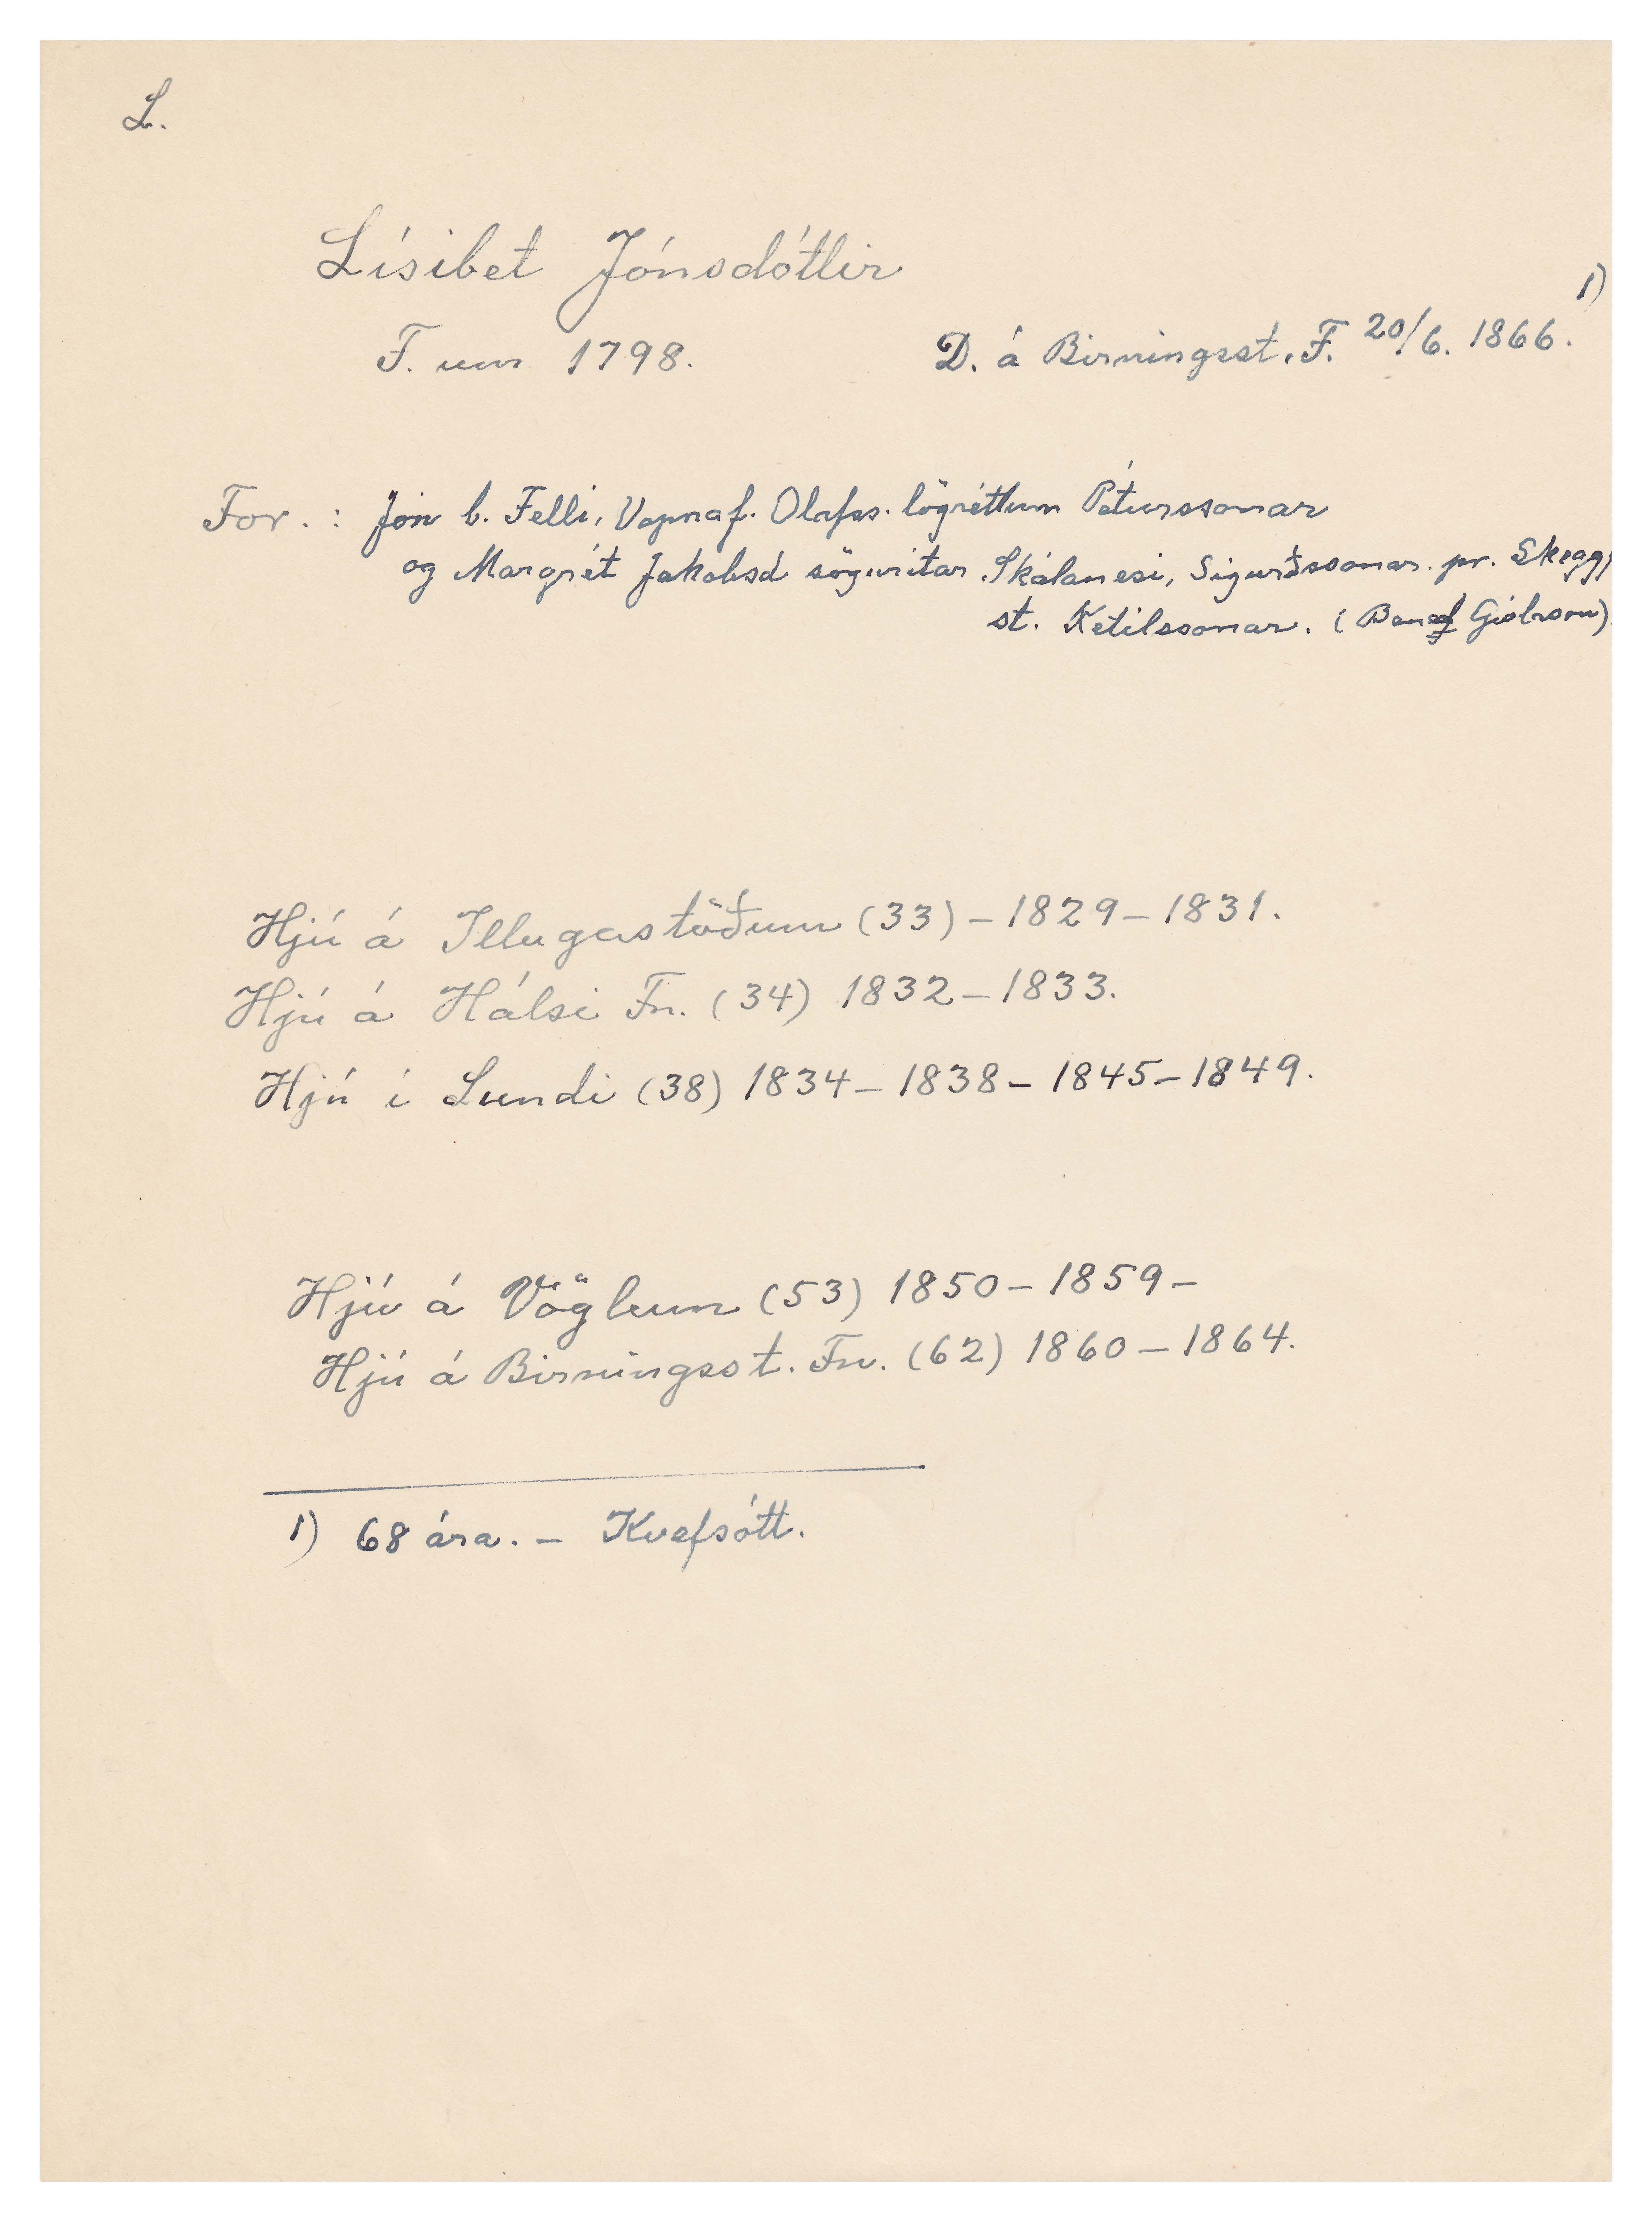 L.
Lísibet Jónsdóttir
F. um 1798. D. á Birningsst. F. 20/6. 1866. 1)
For. : Jón b. Felli, Vopnaf. Olafss. lögréttum Péturssonar
og Margrét Jakobsd söguritar. Skálanesi, Sigurðssonar. pr. Skegg
st. Ketilssonar. (
Hjú á Illugastöðum (33) – 1829 – 1831.
Hjú á Hálsi Fn. (34) 1832 – 1833.
Hjú í Lundi (38) 1834 – 1838 – 1845 – 1849.
Hjú á Vöglum (53) 1850 – 1859 –
Hjú á Birningsst. Fn. (62) 1860 – 1864.
1) 68 ára. – Kvefsótt.